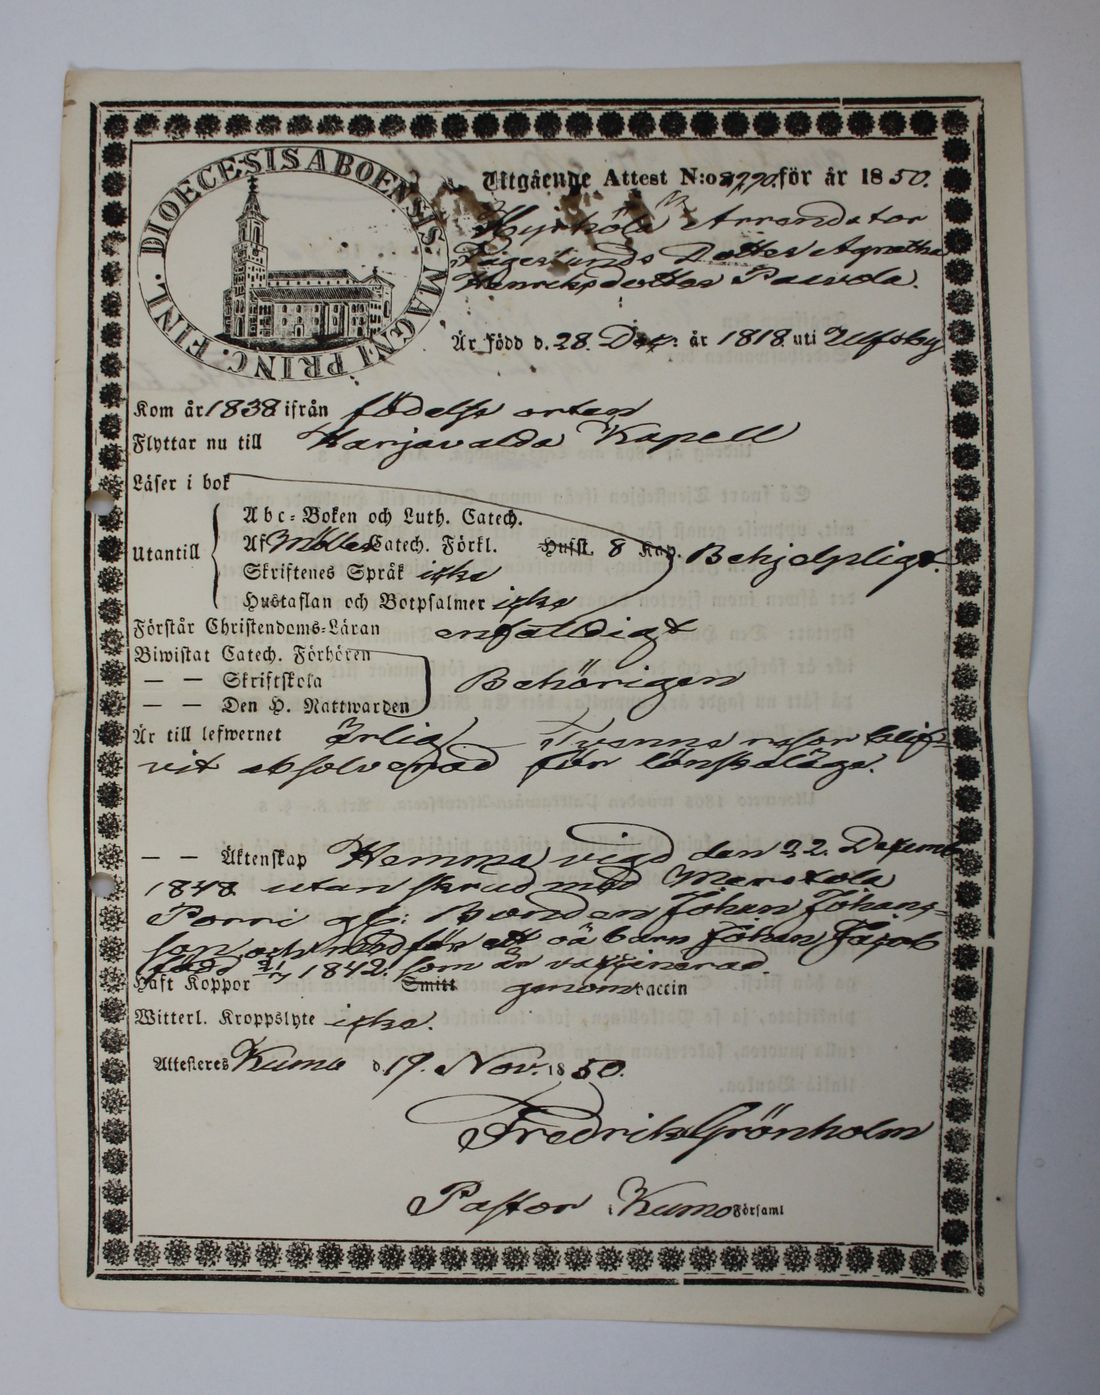 DIOECESIS ABOENSIS MAGNI PRINC. FINL.
Utgående Attest N:o för år 1850.
Hyrköla Arrendator
Fägerlunds Dotter Agnetha
Henriksdotter
Är född d. 28. Dec. år 1818 uti Ulfsby
Kom år 1838 ifrån födelse orten
Flyttar nu till Harjavalda Kapell
Läser i bok
Utantill
Abc-Boken och Luth. Catech.
Af Möllers Catech. Förkl. Hufst. 8 Kap. Behjelpligt.
Skriftenes Språk icke
Hustaflan och Botpsalmer icke
Förstår Christendoms-Läran enfaldigt
Biwistat Catech. Förhören
— — Skriftskola Behörigen
— — Den H. Nattwarden
Är till lefwernet Ärlig. Tvenne resor blif-
vit absolverad för lönskaläge.
— — Äktenskap Hemma vigd den 22. December
1848 utan skrud med Merstola
Porri Bonden Johan Johans-
son och medför ett oä barn Johan Jacob
född 1842. som är vaccinerad.
Haft Koppor Smitt genom vaccin
Witterl. Kroppslyte icke.
Attesteras Kumo d. 19. Nov. 1850.
Fredrik Grönholm
Pastor i Kumo Församl